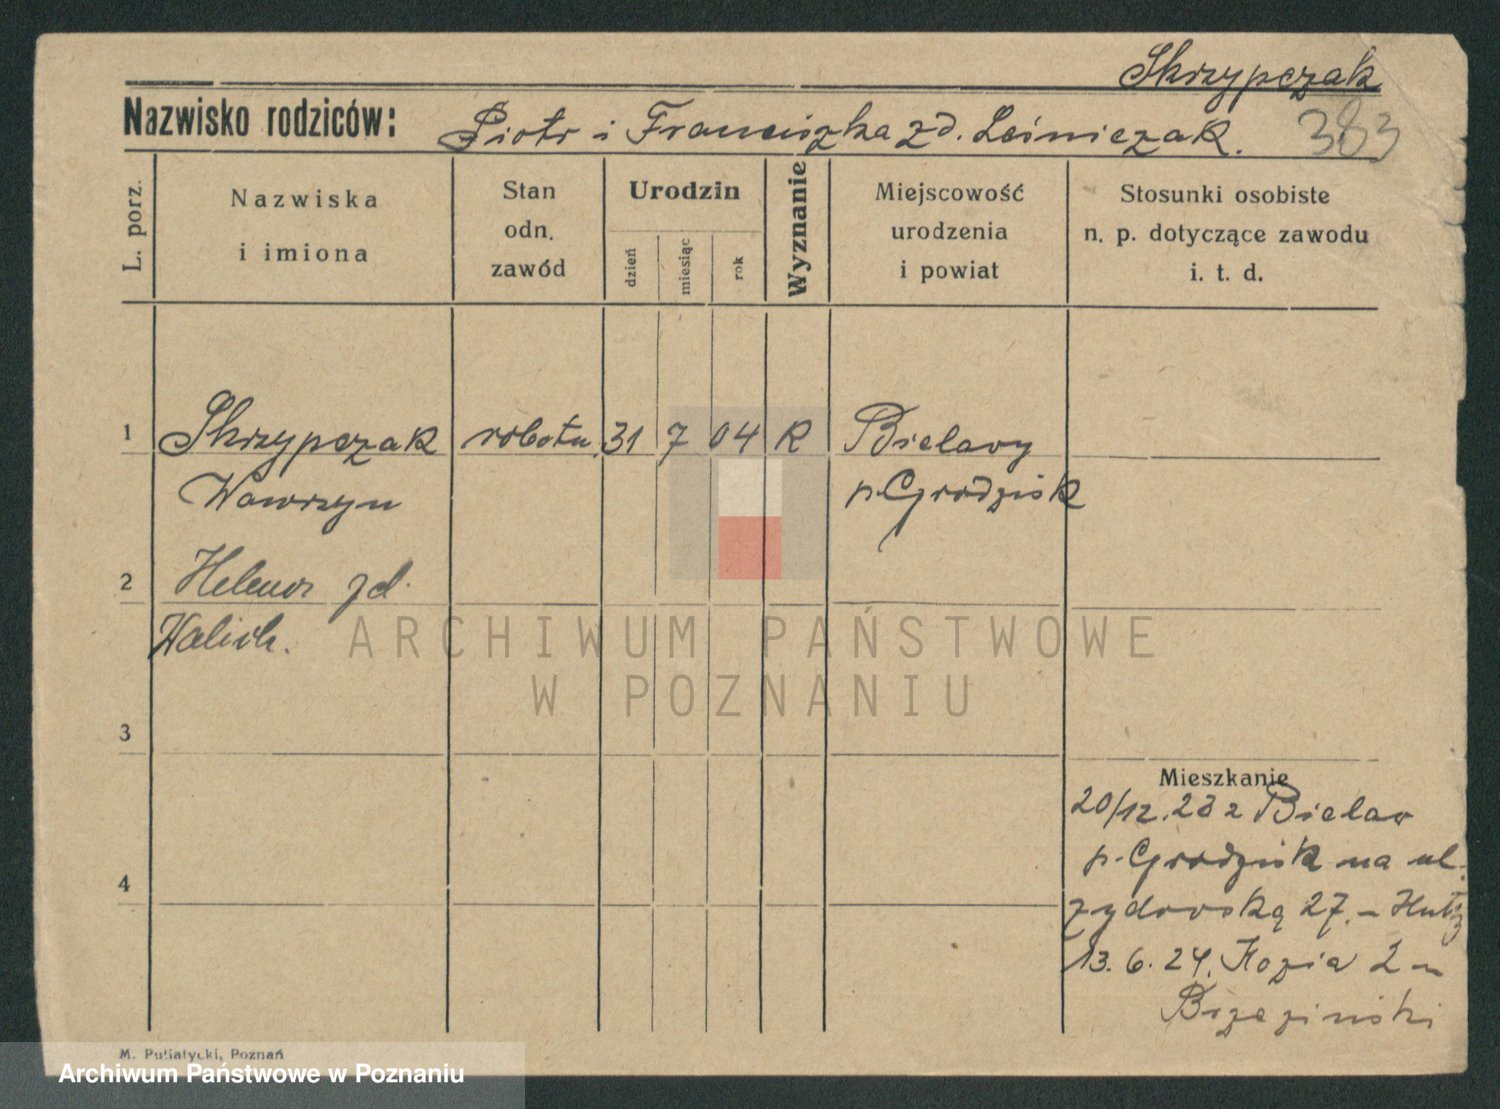 Skrzypczak
Nazwisko rodziców: Piotr i Franciszka zd. Leśniczak.
383
L. porz.
Nazwiska
i imiona
Stan
odn.
zawód
Urodzin
dzień
miesiąc
rok
Wyznanie
Miejscowość
urodzenia
i powiat
Stosunki osobiste
n. p. dotyczące zawodu
i. t. d.
1 Skrzypczak robotn. 31 7 04 R Bielawy
Wawrzyn p. Grodzisk
2 Helena zd.
Walich.
ARCHIWUM PAŃSTWOWE
W POZNANIU
3
Mieszkanie
20/12.23 z Bielaw
p. Grodzisk na ul.
4
żydowską 27. –
13.6.24. Kozia 2 –
Brzeziński
M. Putiatycki, Poznań
Archiwum Państwowe w Poznaniu